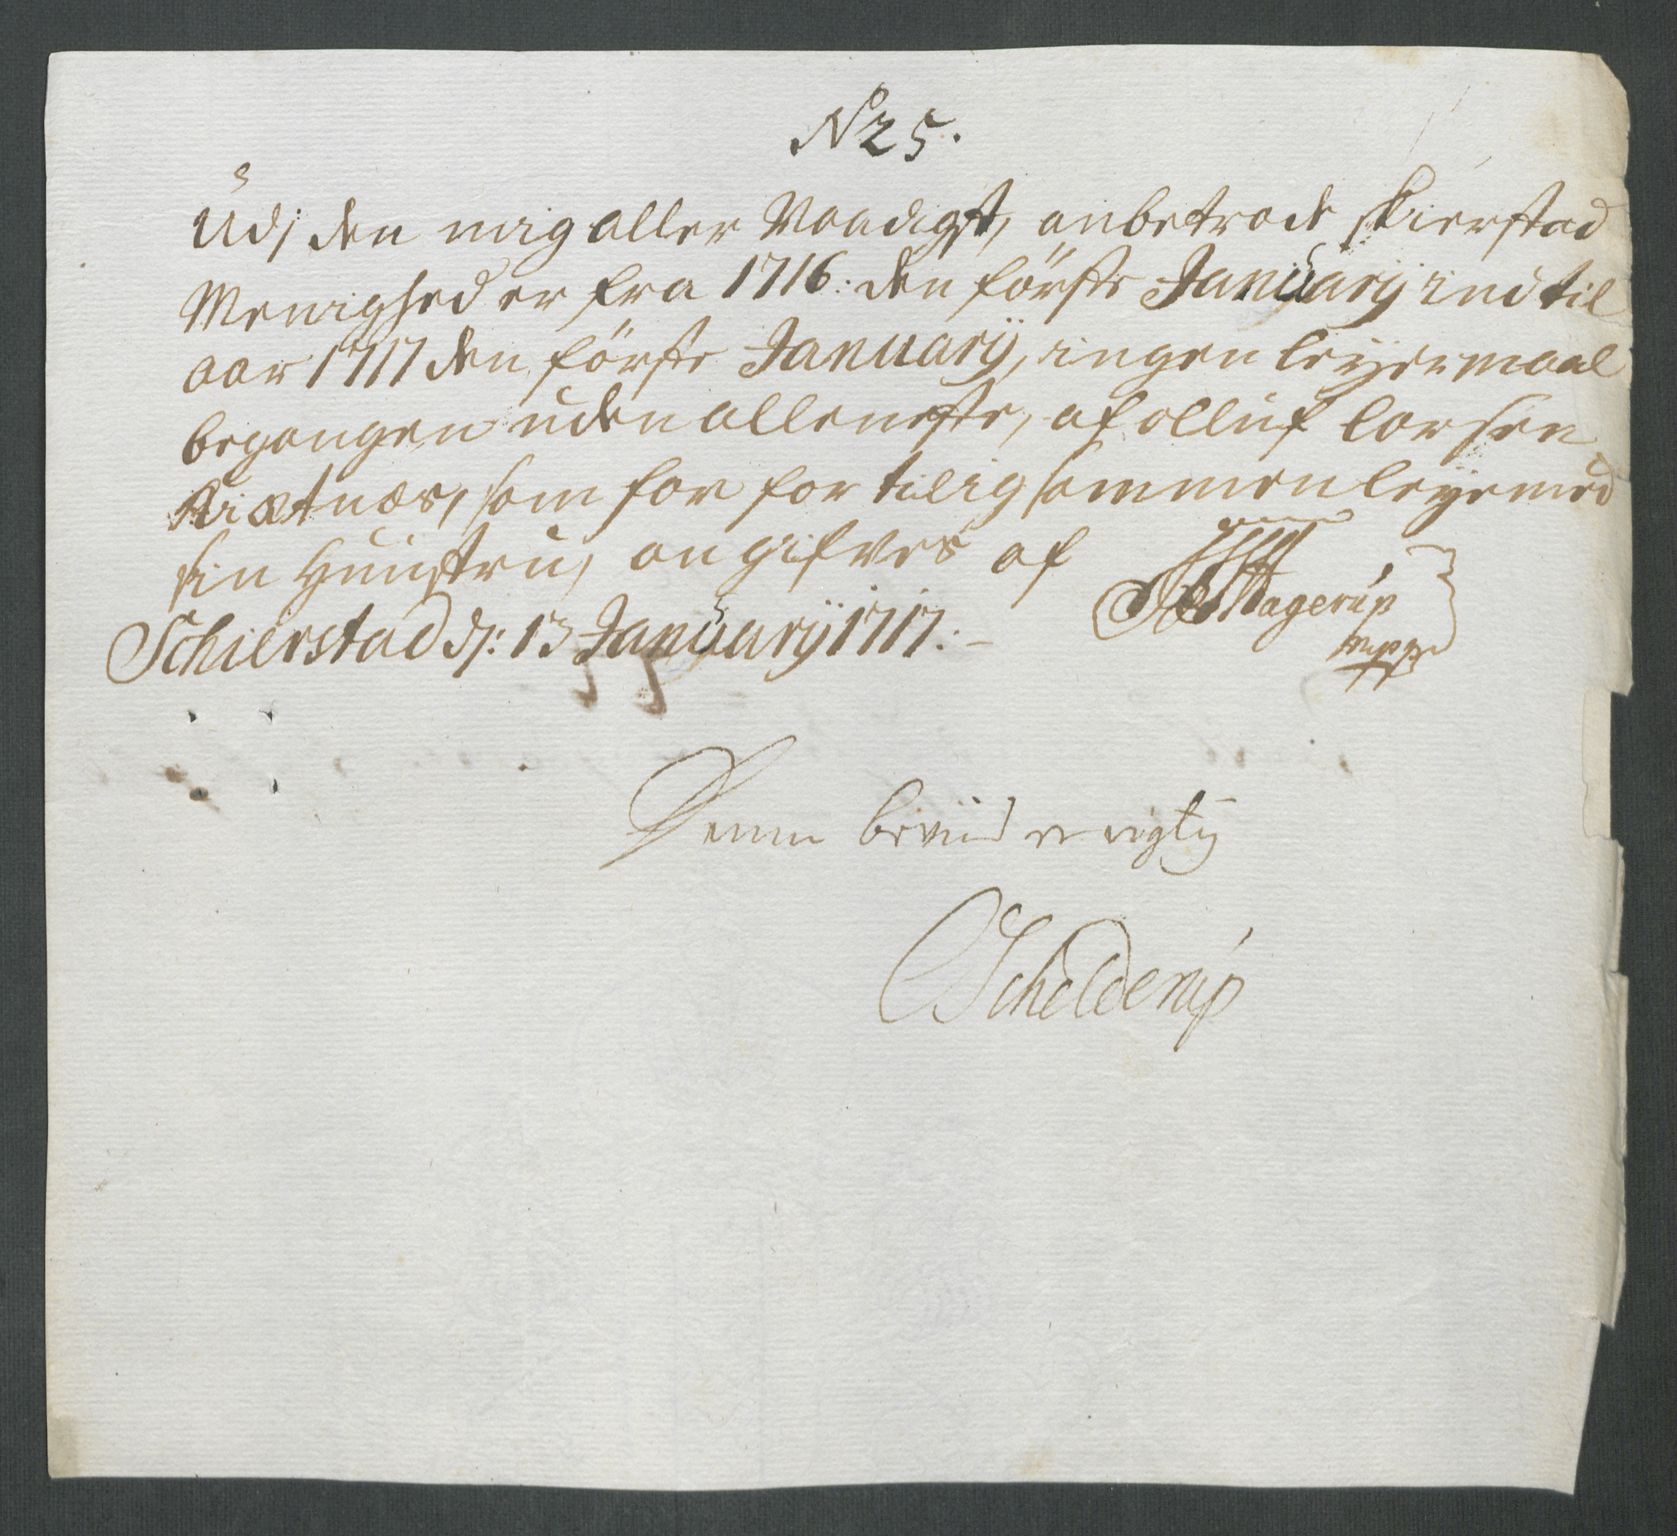 N 25.
Udj den mig aller Naadigst, anbetrode skierstad
Menighed er fra 1716: den förste Januarij ind til
aar 1717 den förste Januarij, ingen leyermaal
begangen uden alleneste, af olluf larsen
som for for tilig sammen leye med
sin Hunstru, an gifves af
Schierstad dj: 13 Januarij 1717. –
Hagerup
mpp
Denne beviis er rigtig
Schelderup